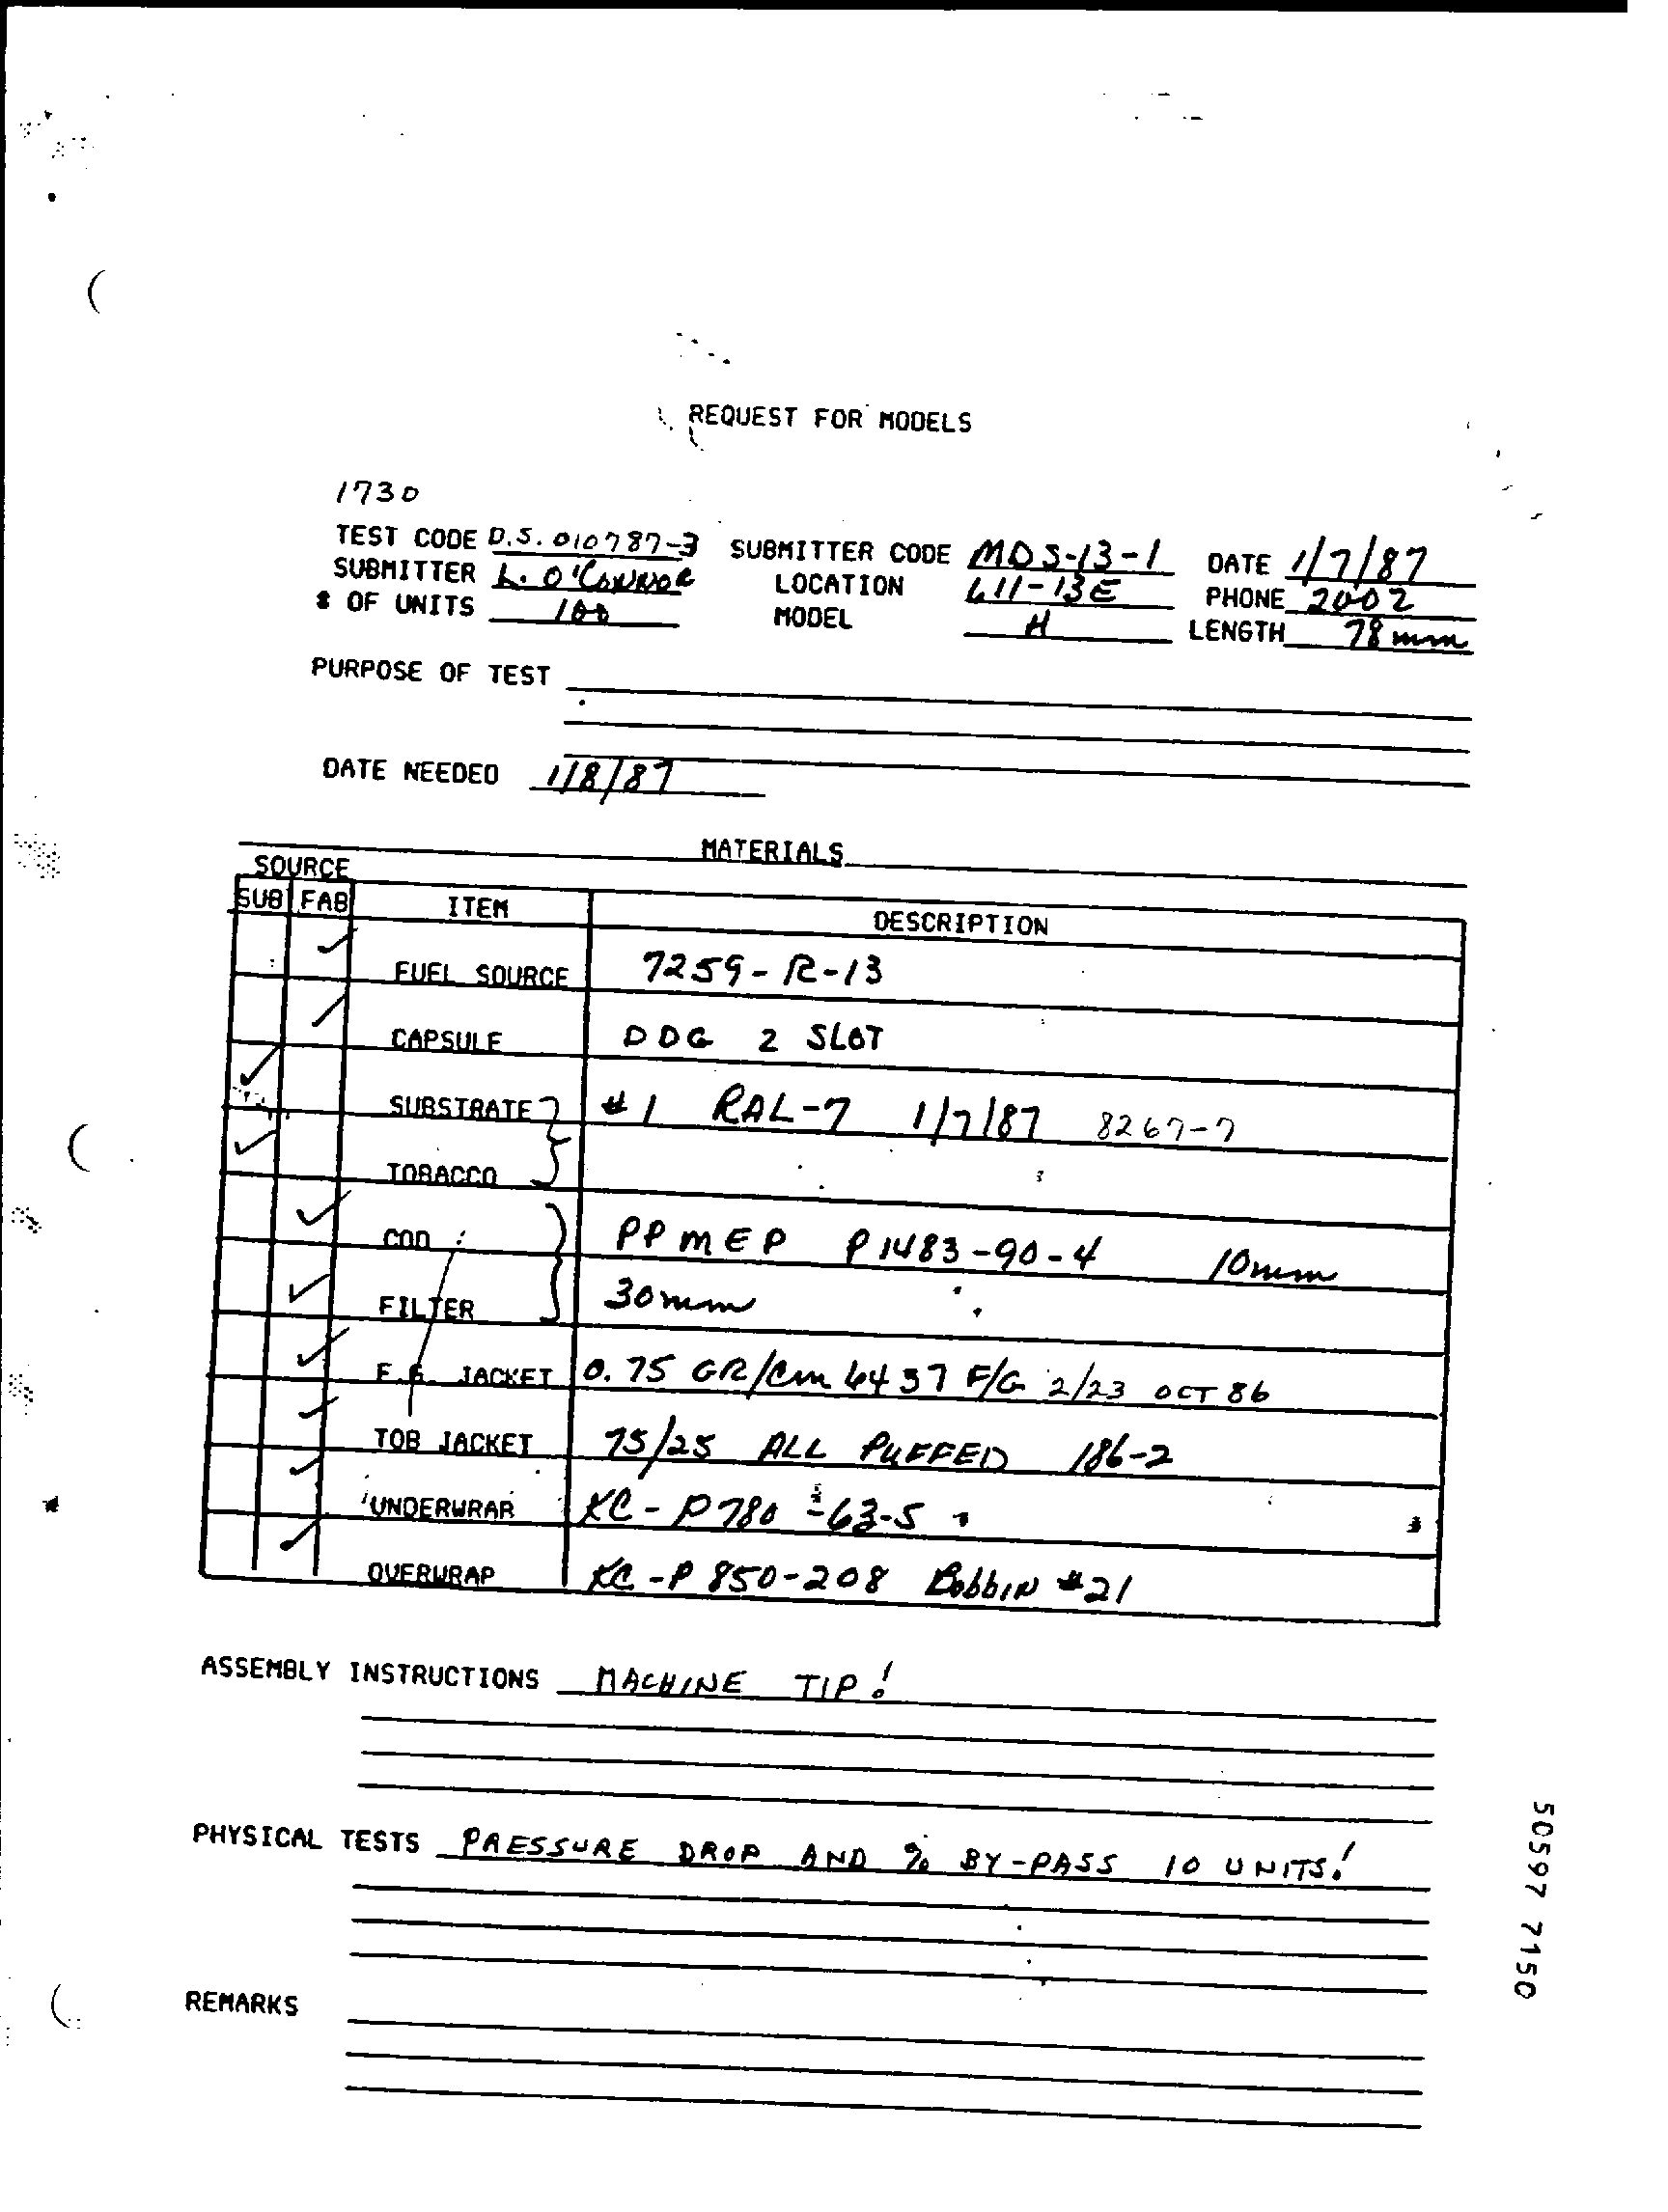 REQUEST FOR MODELS
1730
TEST CODE D.S. 010787-3 SUBMITTER CODE MDS-13-1 DATE 1/7/87
SUBMITTER L. O'CONNOR LOCATION 611-13E PHONE 2002
# OF UNITS 100 MODEL H LENGTH 78mm
PURPOSE OF TEST
DATE NEEDED 1/8/87
MATERIALS
SOURCE
SUB FAB ITEM DESCRIPTION
✓ FUEL SOURCE 7259-R-13
✓ CAPSULE DDG 2 SLOT
✓ SUBSTRATE #1 RAL-7 1/7/87 8267-7
✓ TOBACCO
✓ COD PPMEP P1483-90-4 10mm
✓ FILTER 30mm
✓ F.G. JACKET 0.75 GR/Cm 6437 F/G 2/23 OCT 86
✓ TOB JACKET 75/25 ALL PUFFED 186-2
✓ UNDERWRAP KC-P780-63-5
✓ OVERWRAP KC-P850-208 BobbIN #21
ASSEMBLY INSTRUCTIONS MACHINE TIP!
PHYSICAL TESTS PRESSURE DROP AND % BY-PASS 10 UNITS!
REMARKS
50597 7150